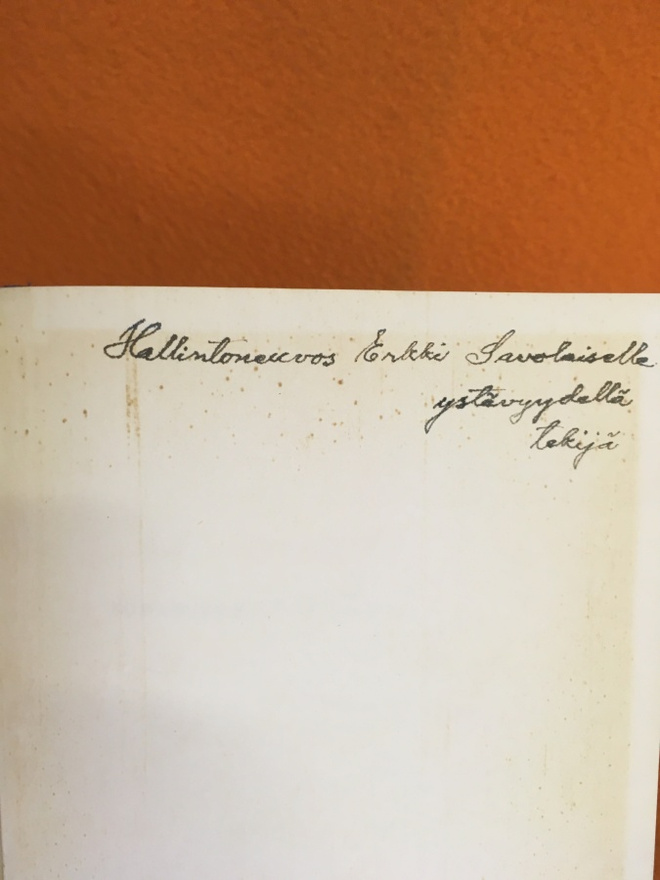 Hallintoneuvos Erkki Savolaiselle
ystävyydellä
tekijä